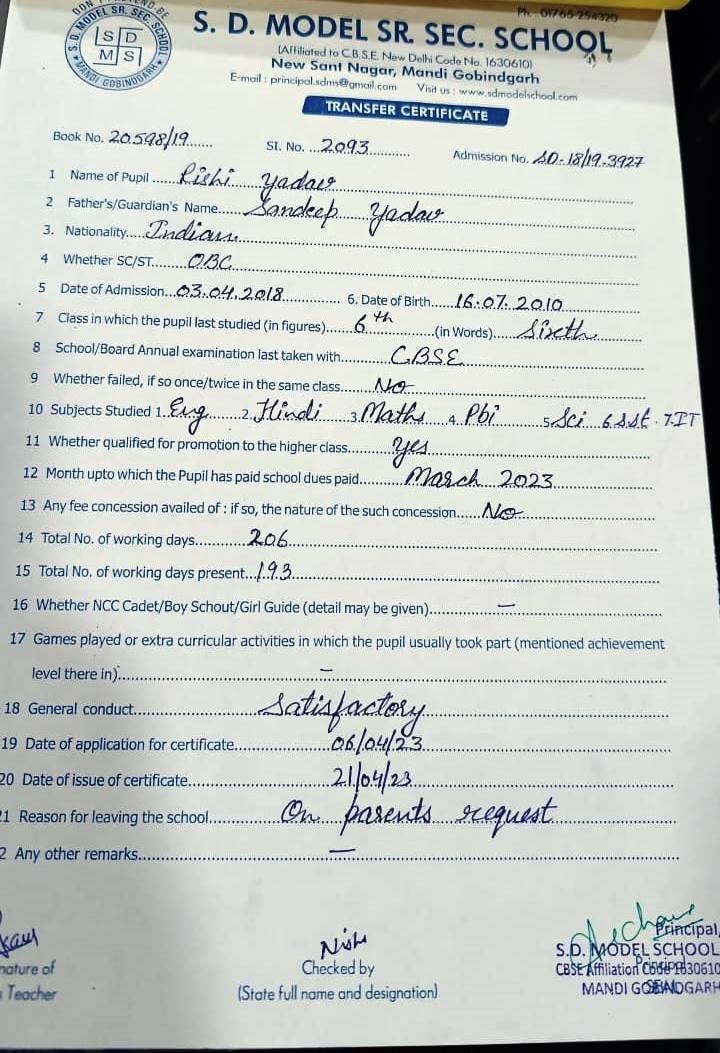 S. D. MODEL SR. SEC. SCHOOL
MANDI GOBINDGARH
S D
M S
Ph : 01765-254320
S. D. MODEL SR. SEC. SCHOOL
(Affiliated to C.B.S.E. New Delhi Code No. 1630610)
New Sant Nagar, Mandi Gobindgarh
E-mail : principal.sdms@gmail.com Visit us : www.sdmodelschool.com
TRANSFER CERTIFICATE
Book No. 20598/19 SI. No. 2093 Admission No. SD-18/19-3927
1 Name of Pupil Rishi Yadav
2 Father's/Guardian's Name Sandeep Yadav
3. Nationality Indian
4 Whether SC/ST OBC
5 Date of Admission 03.04.2018 6. Date of Birth 16.07.2010
7 Class in which the pupil last studied (in figures) 6th (in Words) Sixth
8 School/Board Annual examination last taken with CBSE
9 Whether failed, if so once/twice in the same class No
10 Subjects Studied 1. Eng 2. Hindi 3. Maths 4. Pbi 5. Sci 6 SSt. 7.IT
11 Whether qualified for promotion to the higher class yes
12 Month upto which the Pupil has paid school dues paid March 2023
13 Any fee concession availed of : if so, the nature of the such concession No
14 Total No. of working days 206
15 Total No. of working days present 193
16 Whether NCC Cadet/Boy Schout/Girl Guide (detail may be given) —
17 Games played or extra curricular activities in which the pupil usually took part (mentioned achievement
level there in) —
18 General conduct Satisfactory
19 Date of application for certificate 06/04/23
20 Date of issue of certificate 21/04/23
21 Reason for leaving the school On parents request
2 Any other remarks —
Nisha
nature of Checked by Principal,
Teacher (State full name and designation) S.D. MODEL SCHOOL
CBSE Affiliation Code-1630610
MANDI GOBINDGARH